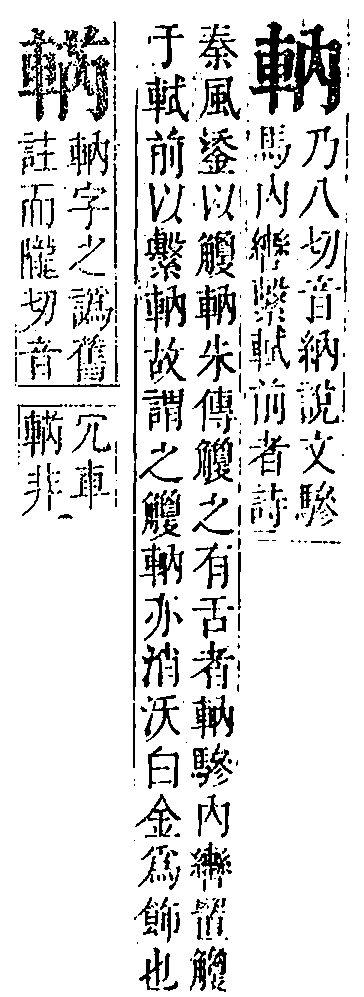 軜
乃八切音納說文驂
馬內轡繫軾前者詩
秦風鋈以觼軜朱傳觼之有舌者軜驂內轡置觼
于軾前以繫軜故謂之觼軜亦消沃白金爲飾也
軜字之譌舊
註而隴切音
宂車
非